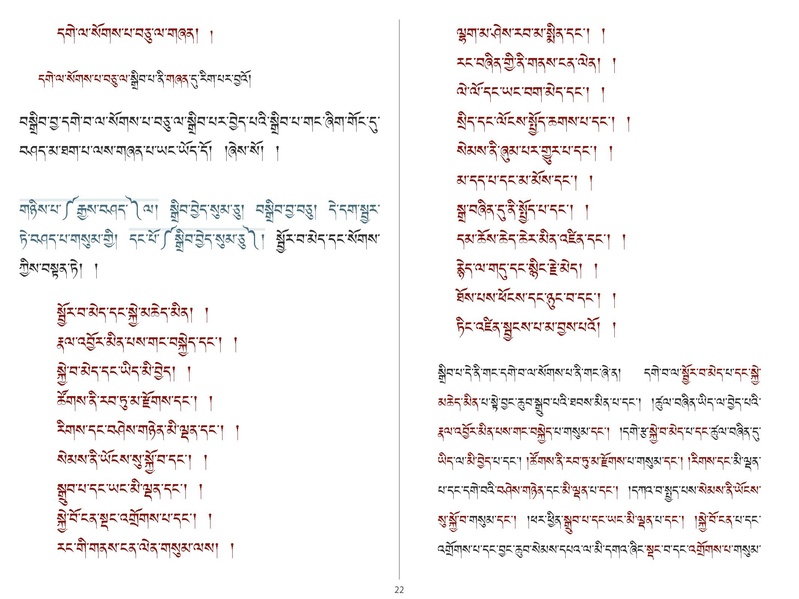 དགེ་ལ་སོགས་པ་བཅུ་ལ་གཞན། །
དགེ་ལ་སོགས་པ་བཅུ་ལ་སྒྲིབ་པ་ནི་གཞན་དུ་རིག་པར་བྱའོ།
བསྒྲིབ་བྱ་དགེ་བ་ལ་སོགས་པ་བཅུ་ལ་སྒྲིབ་པར་བྱེད་པའི་སྒྲིབ་པ་གང་ཞིག་གོང་དུ་
བཤད་མ་ཐག་པ་ལས་གཞན་པ་ཡང་ཡོད་དོ། །ཞེས་སོ། །
གཉིས་པ་༼རྒྱས་བཤད་༽ལ། སྒྲིབ་བྱེད་སུམ་ཅུ། བསྒྲིབ་བྱ་བཅུ། དེ་དག་སྦྱར་
ཏེ་བཤད་པ་གསུམ་གྱི། དང་པོ་༼སྒྲིབ་བྱེད་སུམ་ཅུ་༽། སྦྱོར་བ་མེད་དང་སོགས་
ཀྱིས་བསྟན་ཏེ། །
སྦྱོར་བ་མེད་དང་སྐྱེ་མཆེད་མིན། །
རྣལ་འབྱོར་མིན་པས་གང་བསྐྱེད་དང་། །
སྐྱེ་བ་མེད་དང་ཡིད་མི་བྱེད། །
ཚོགས་ནི་རབ་ཏུ་མ་རྫོགས་དང་། །
རིགས་དང་བཤེས་གཉེན་མི་ལྡན་དང་། །
སེམས་ནི་ཡོངས་སུ་སྐྱོ་བ་དང་། །
སྒྲུབ་པ་དང་ཡང་མི་ལྡན་དང་། །
སྐྱེ་བོ་ངན་སྡང་འགྲོགས་པ་དང་། །
རང་གི་གནས་ངན་ལེན་གསུམ་ལས། །
ལྷག་མ་ཤེས་རབ་མ་སྨིན་དང་། །
རང་བཞིན་གྱི་ནི་གནས་ངན་ལེན། །
ལེ་ལོ་དང་ཡང་བག་མེད་དང་། །
སྲིད་དང་ལོངས་སྤྱོད་ཆགས་པ་དང་། །
སེམས་ནི་ཞུམ་པར་གྱུར་པ་དང་། །
མ་དད་པ་དང་མ་མོས་དང་། །
སྒྲ་བཞིན་དུ་ནི་སྤྱོད་པ་དང་། །
དམ་ཆོས་ཆེད་ཆེར་མིན་འཛིན་དང་། །
རྙེད་ལ་གདུ་དང་སྙིང་རྗེ་མེད། །
ཐོས་པས་ཕོངས་དང་ཉུང་བ་དང་། །
ཏིང་འཛིན་སྦྱངས་པ་མ་བྱས་པའོ། །
སྒྲིབ་པ་དེ་ནི་གང་དགེ་བ་ལ་སོགས་པ་ནི་གང་ཞེ་ན། དགེ་བ་ལ་སྦྱོར་བ་མེད་པ་དང་སྐྱེ་
མཆེད་མིན་པ་སྟེ་བྱང་ཆུབ་སྒྲུབ་པའི་ཐབས་མིན་པ་དང་། །ཚུལ་བཞིན་ཡིད་ལ་བྱེད་པའི་
རྣལ་འབྱོར་མིན་པས་གང་བསྐྱེད་པ་གསུམ་དང་། །དགེ་རྩ་སྐྱེ་བ་མེད་པ་དང་ཚུལ་བཞིན་དུ་
ཡིད་ལ་མི་བྱེད་པ་དང་། །ཚོགས་ནི་རབ་ཏུ་མ་རྫོགས་པ་གསུམ་དང་། །རིགས་དང་མི་ལྡན་
པ་དང་དགེ་བའི་བཤེས་གཉེན་དང་མི་ལྡན་པ་དང་། །དཀའ་བ་སྤྱད་པས་སེམས་ནི་ཡོངས་
སུ་སྐྱོ་བ་གསུམ་དང་། །ཕར་ཕྱིན་སྒྲུབ་པ་དང་ཡང་མི་ལྡན་པ་དང་། །སྐྱེ་བོ་ངན་པ་དང་
འགྲོགས་པ་དང་བྱང་ཆུབ་སེམས་དཔའ་ལ་མི་དགའ་ཞིང་སྡང་བ་དང་འགྲོགས་པ་གསུམ་
22